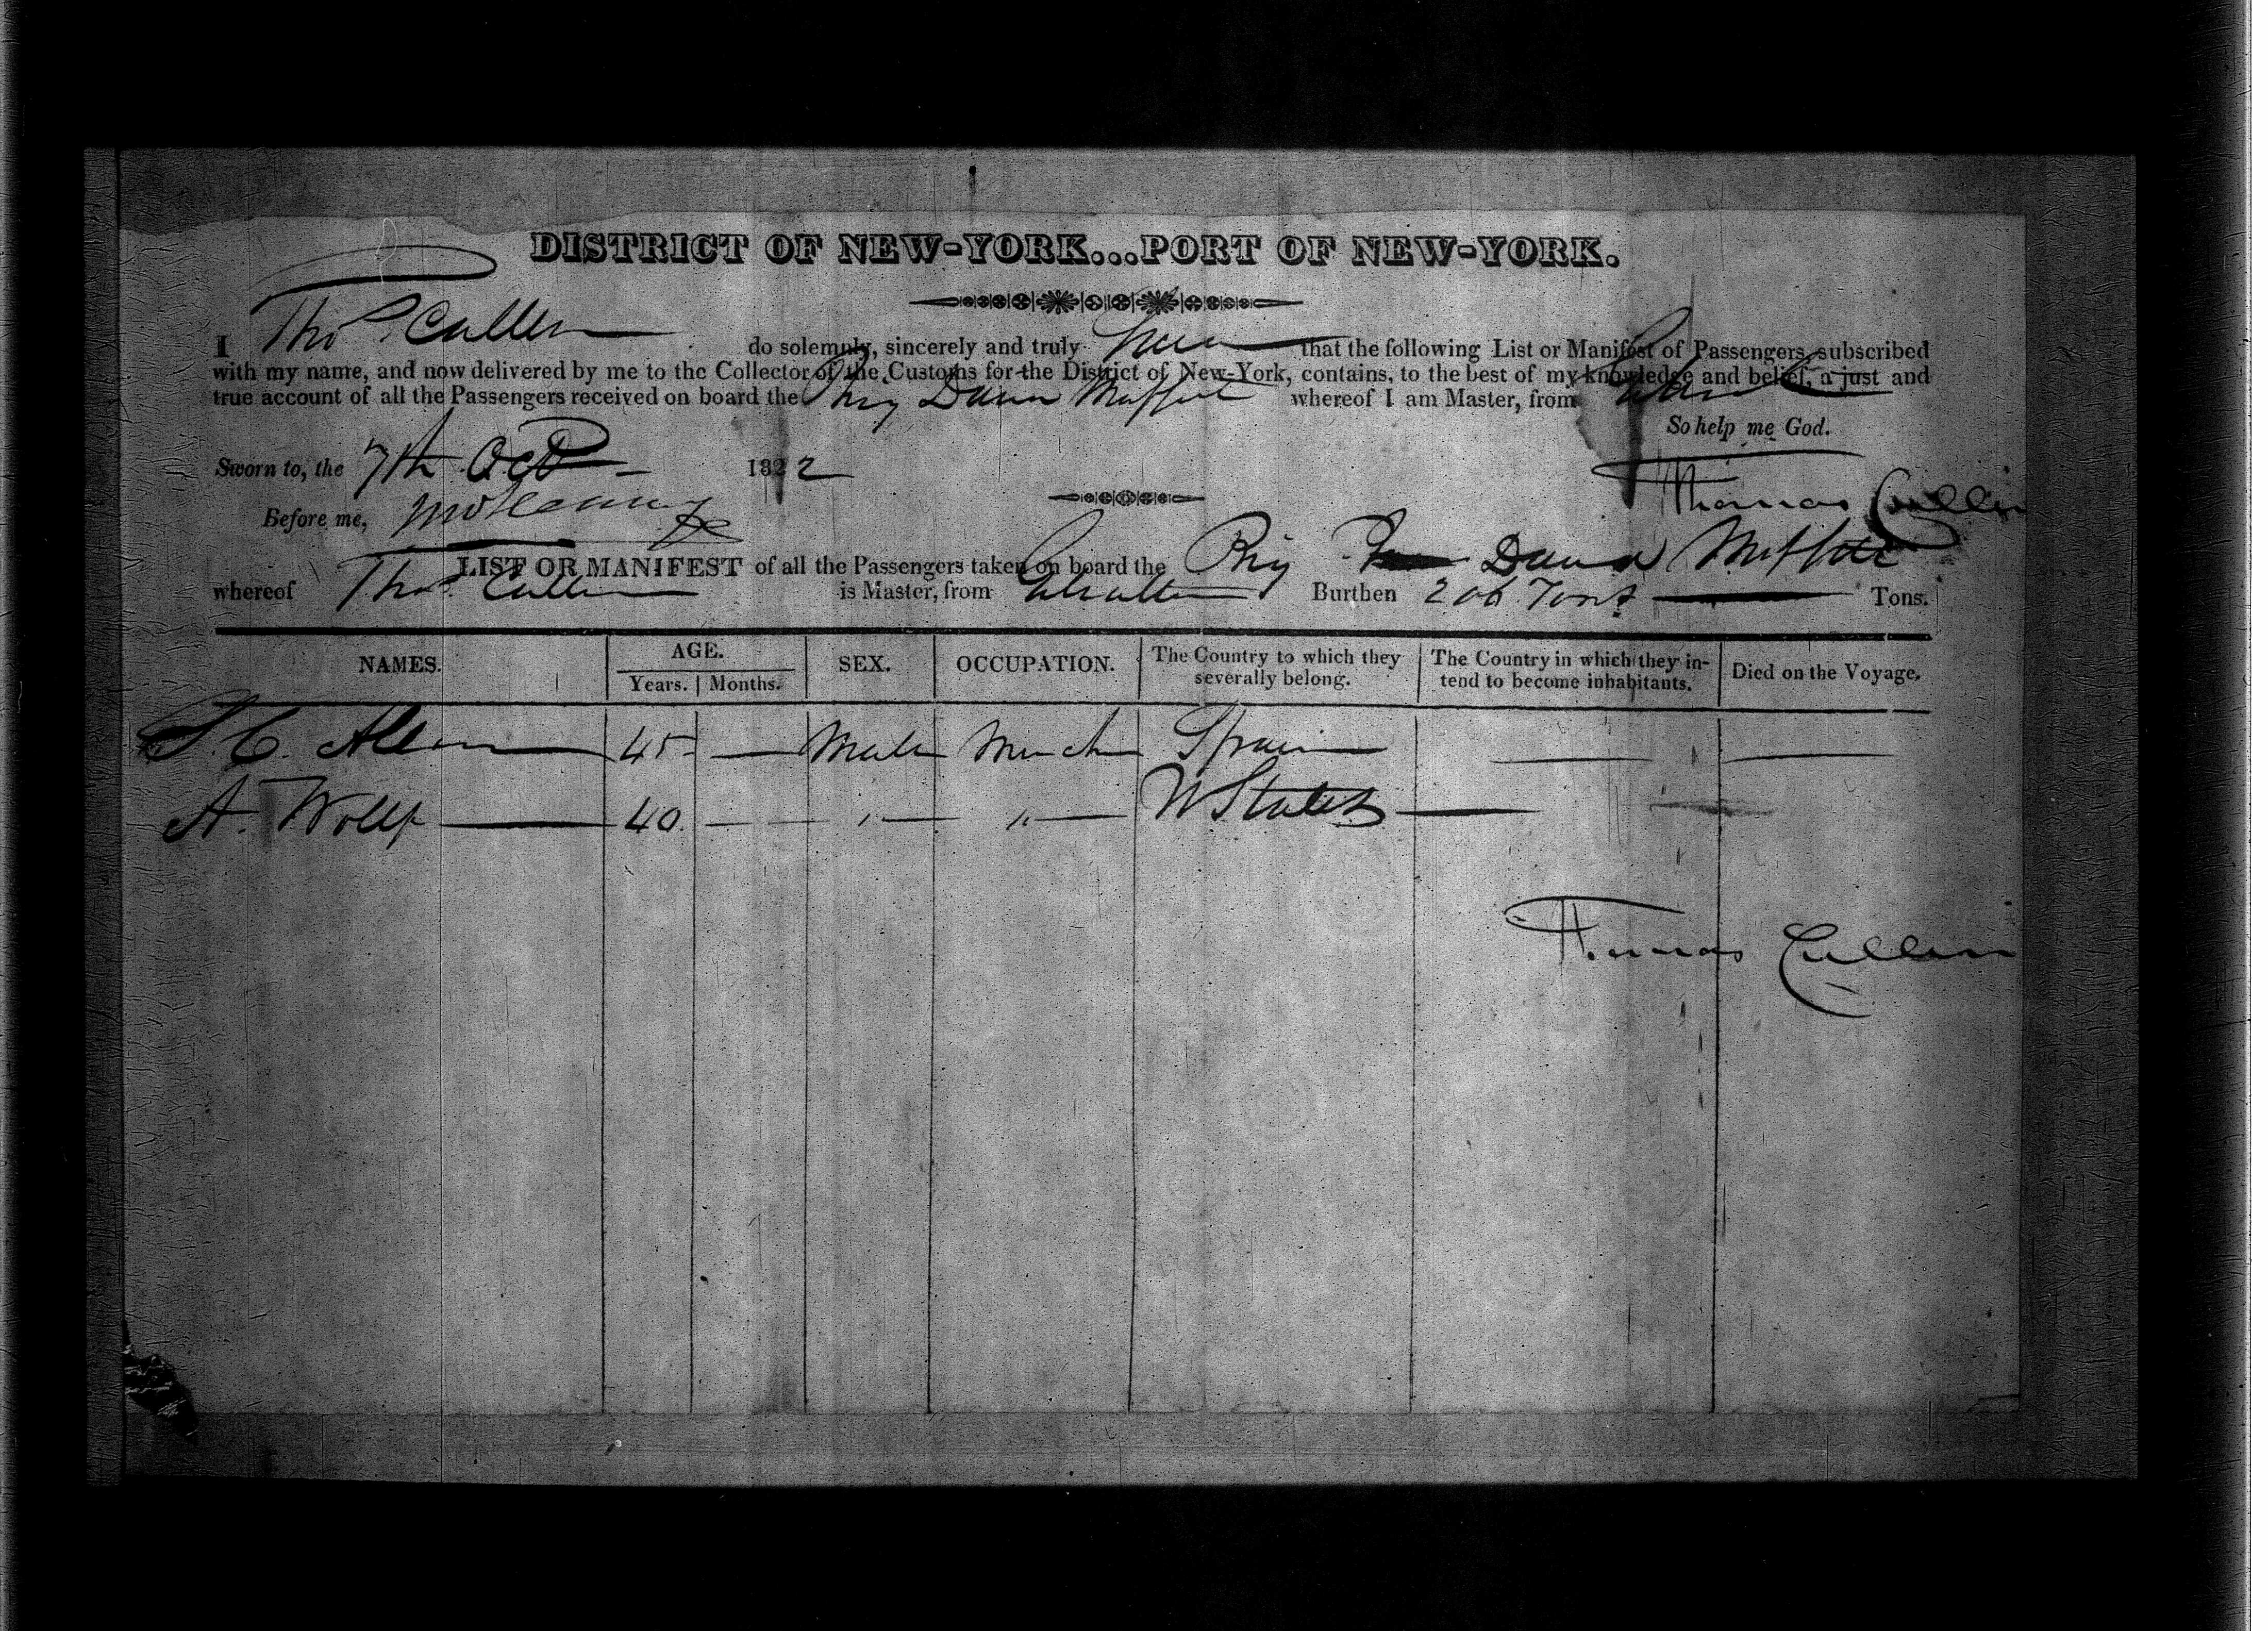 DISTRICT OF NEW-YORK...PORT OF NEW-YORK.
I Thos Cullen do solemnly, sincerely and truly Swear that the following List or Manifest of Passengers, subscribed
with my name, and now delivered by me to the Collector of the Customs for the District of New-York, contains, to the best of my knowledge and belief, a just and
true account of all the Passengers received on board the Brig Dawn Moffett whereof I am Master, from
So help me God.
Sworn to, the 7th Oct 1822
Thomas Cullen
Before me,
LIST OR MANIFEST of all the Passengers taken on board the Brig Moffett
whereof Thos. Cullen is Master, from Gibralter Burthen 206 Tons Tons.
NAMES. AGE. SEX. OCCUPATION. The Country to which they severally belong. The Country in which they intend to become inhabitants. Died on the Voyage.
Years. Months.
S. C. Allen 45 — Male Merch Spain — —
A. Wolff 40 — " " U States —
Thomas Cullen